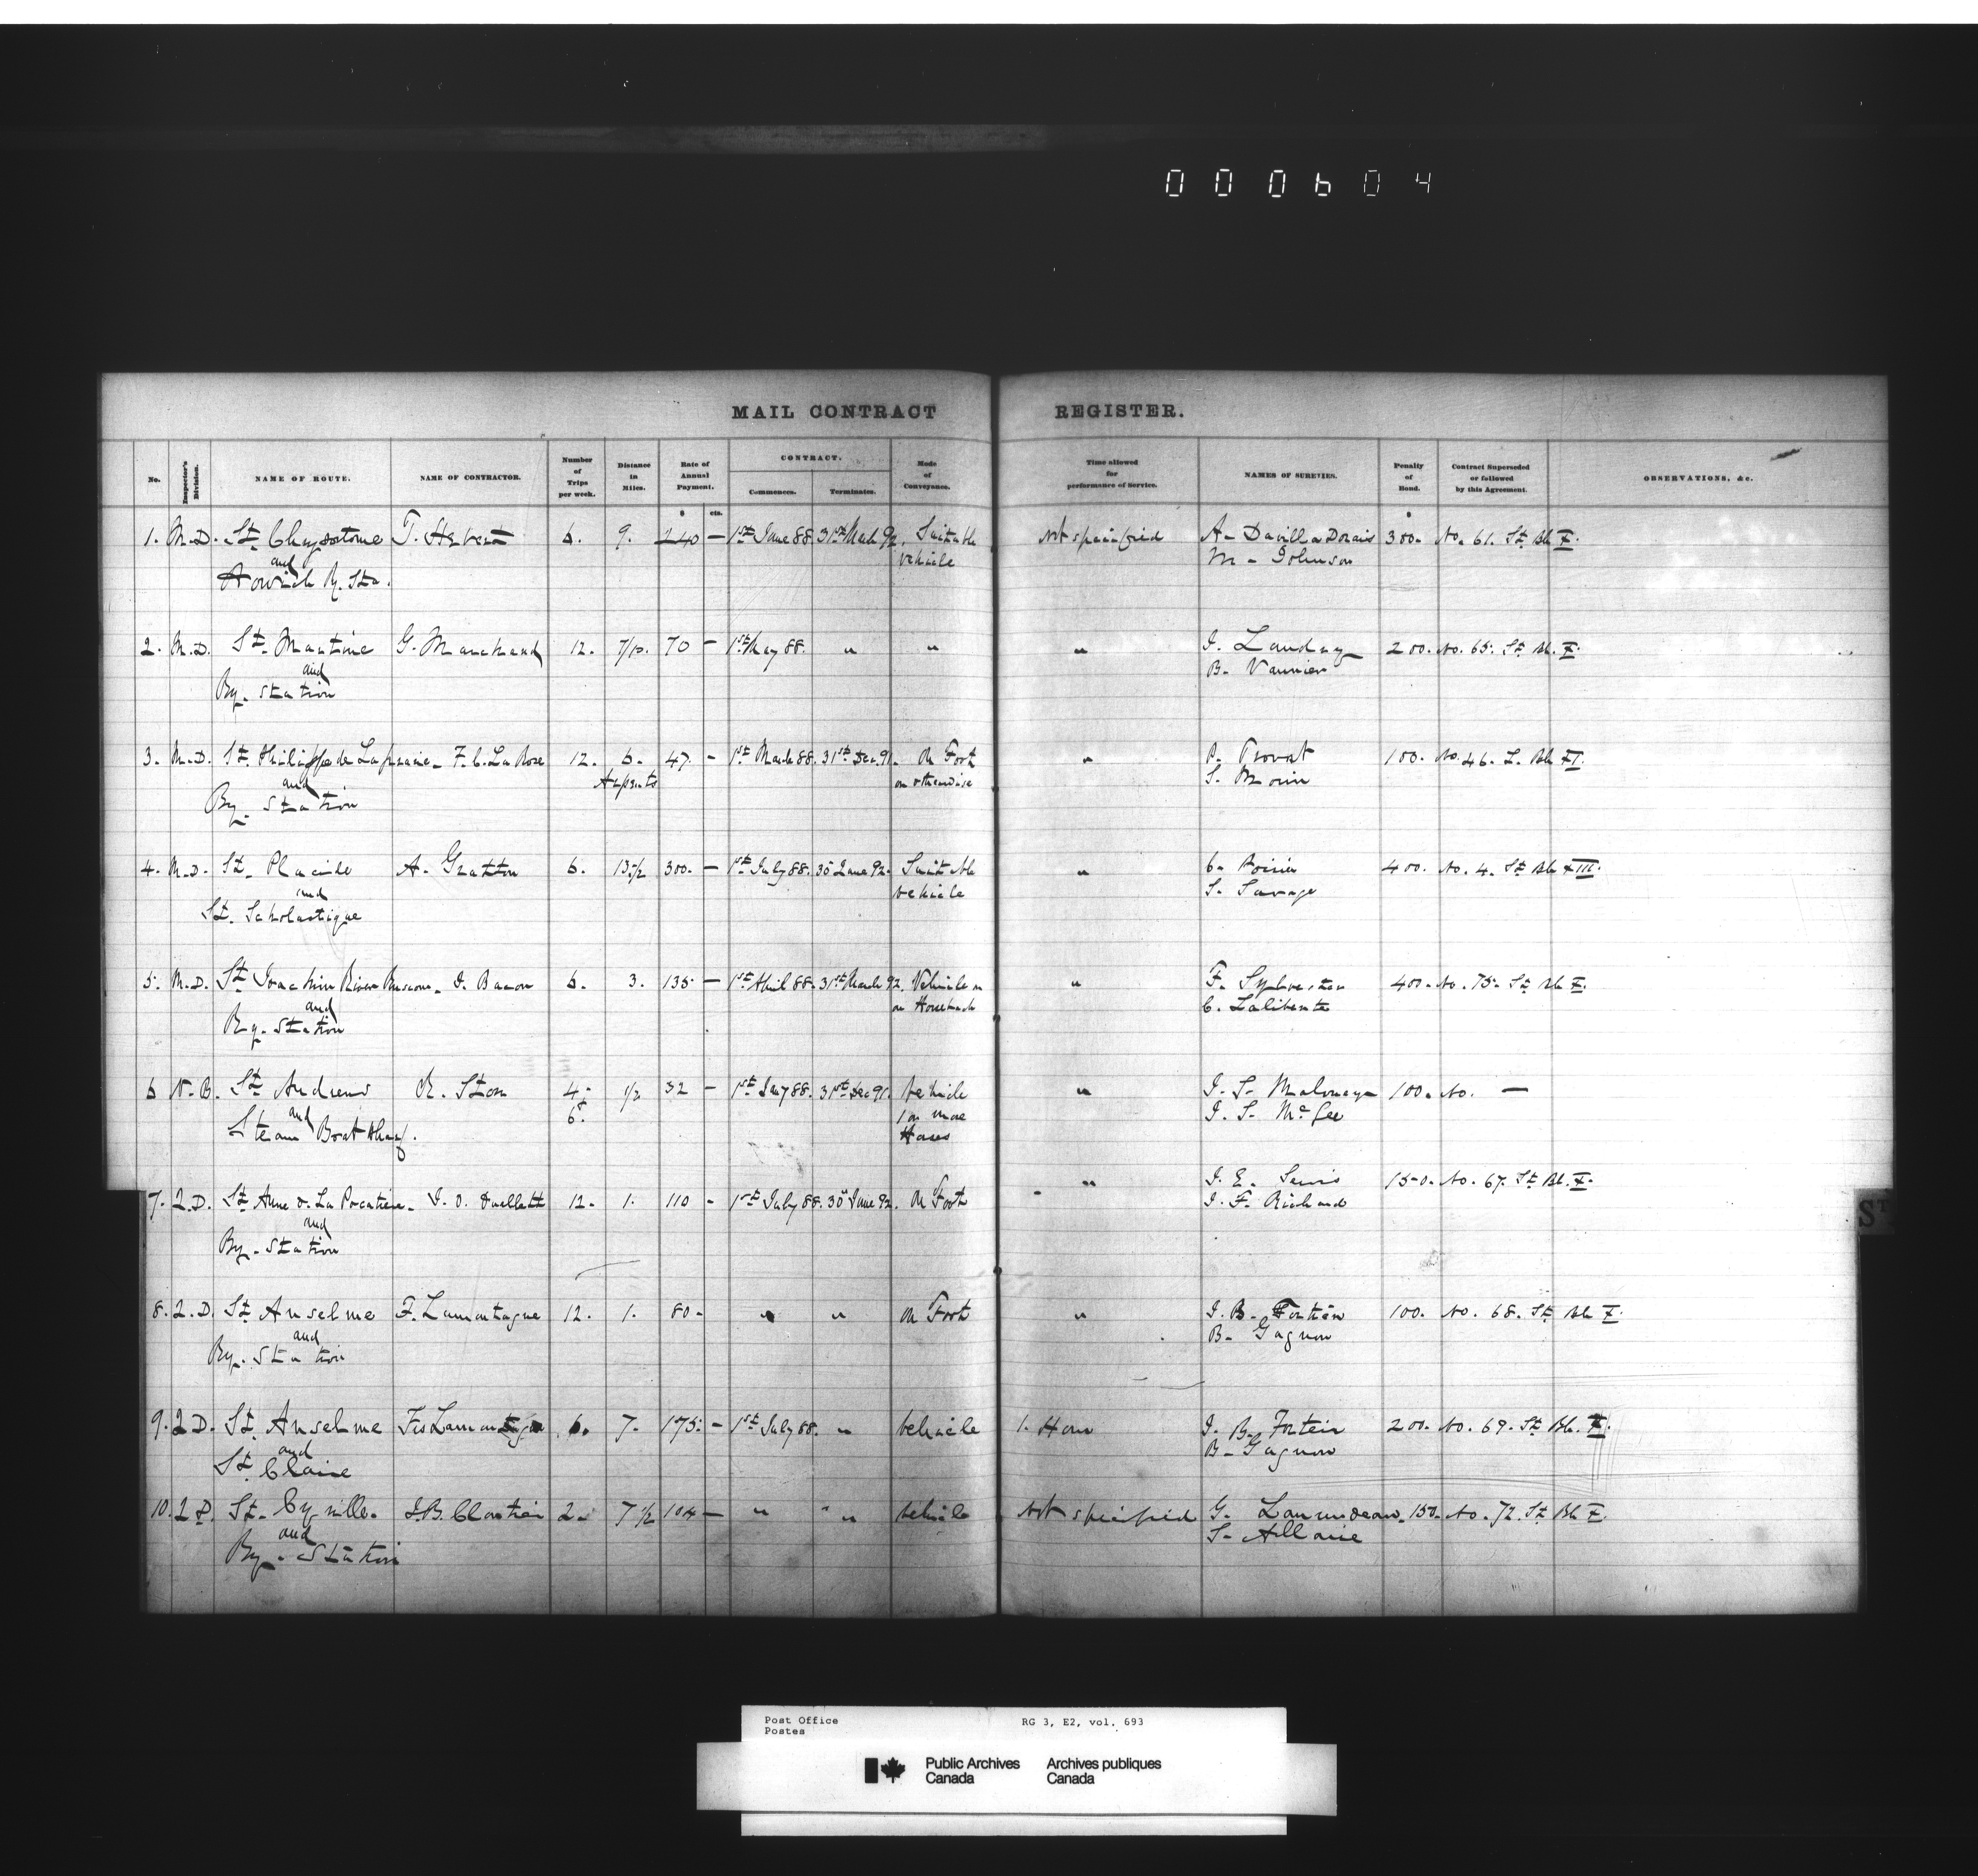 000604
MAIL CONTRACT REGISTER.
No. Inspector's Division. NAME OF ROUTE. NAME OF CONTRACTOR. Number of Trips per week. Distance in Miles. Rate of Annual Payment. CONTRACT. Commences. Terminates. Mode of Conveyance. Time allowed for performance of Service. NAMES OF SURETIES. Penalty of Bond. Contract Superseded or followed by this Agreement. OBSERVATIONS, &c.
$ cts. $
1. M.D. St. Chrysostome T. Hebert 6. 9. 240 — 1st June 88. 31st March 92. Suitable not specified A. Davilla Dorais 300. No. 61. St. Bk X.
and vehicle M. Johnson
Howick Ry. Sta.
2. M.D. St. Martine G. Marchand 12. 7/10. 70 — 1st May 88. " " " J. Landry 200. No. 65. St. Bk. X.
and B. Vannier
Ry. Station
3. M.D. St. Philippe de Laprairie. F. C. La Rose 12. 6. 47. — 1st March 88. 31st Dec. 91. On Foot " P. Provost 100. No. 46. L. Bk XI.
and Arpents or otherwise S. Morin
Ry. Station
4. M.D. St. Placide A. Gratton 6. 13 1/2 300. — 1st July 88. 30 June 92. Suitable " C. Poirier 400. No. 4. St Bk XIII.
and vehicle S. Savage
St. Scholastique
5. M.D. St. Joachim River Ruscom. J. Bacon 6. 3. 135 — 1st April 88. 31st March 92. Vehicle or " F. Sylvester 400. No. 75. St Bk X.
and on Horseback C. Laliberte
Ry. Station
6 N.B. St. Andrews R. Stor 4. 1/2 32 — 1st Jany 88. 31st Dec 91. Vehicle " J. S. Maloney 100. No. —
and 6. 1 or more J. S. McGee
Steam Boat Wharf. Horses
7. Q.D. St. Anne d. La Pocatiere. J. O. Ouellett 12. 1. 110 - 1st July 88. 30 June 92. On Foot " J. E. 150. No. 67. St Bk. X.
and J. F. Richard
Ry. Station
8. Q.D. St. Anselme F. Lamontagne 12. 1. 80 - " " On Foot " J. B. Fortier 100. No. 68. St Bk X.
and B. Gagnon
Ry. Station
9. Q.D. St. Anselme Frs Lamontagne 6. 7. 175. — 1st July 88. " Vehicle 1. Hour J. B. Fortier 200. No. 69. St Bk. X.
and B. Gagnon
St. Claire
10. Q.D. St. Cyrille. J.B. Cloutier 2. 7 1/2 104 — " " " Vehicle Not specified G. Lamondeau. 150. No. 72. St Bk X.
and S. Allaire
Ry. Station
St
Post Office RG 3, E2, vol. 693
Postes
Public Archives Archives publiques
Canada Canada